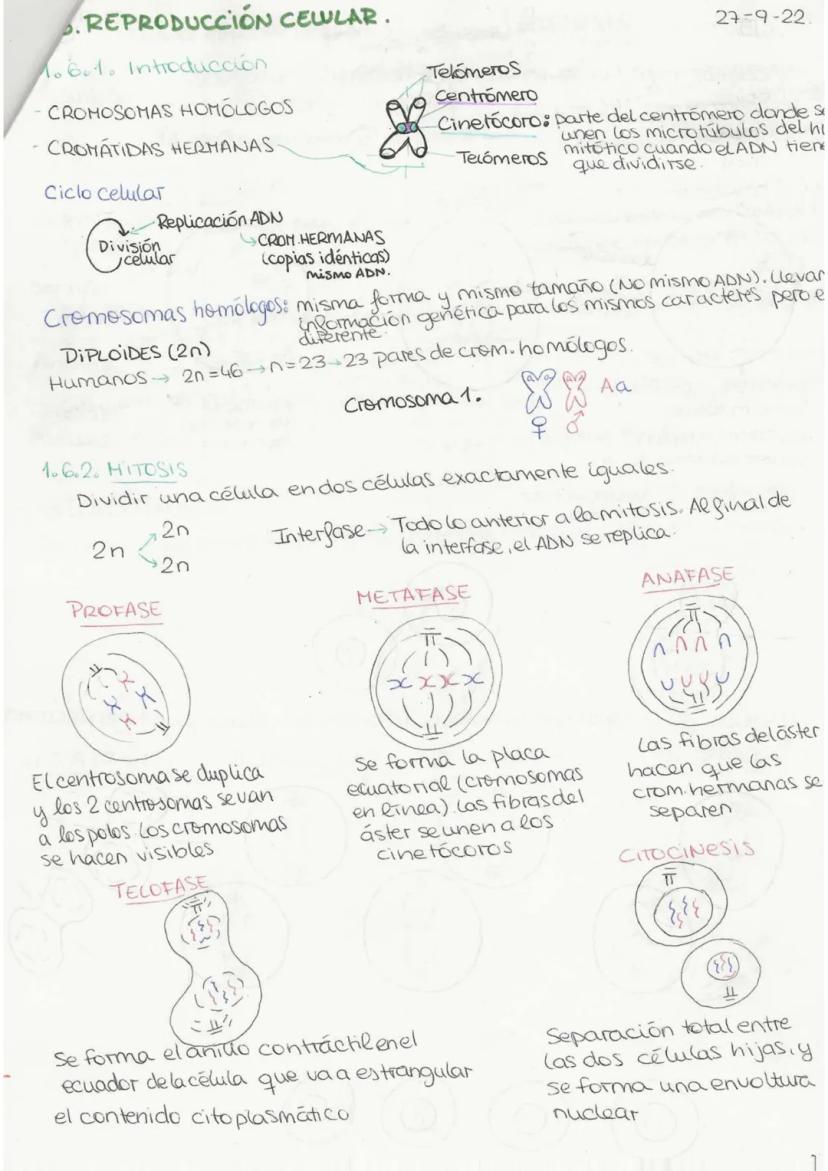 . REPRODUCCIÓN CELULAR.
27-9-22.
1.6.1. Introducción
- CROMOSOMAS HOMÓLOGOS
- CROMÁTIDAS HERMANAS
Telómeros
Centrómero
Cinetócoro: parte del centrómero donde se
unen los microtúbulos del
mitótico cuando el ADN tiene
que dividirse.
Telómeros
Ciclo celular
Replicación ADN
División
celular
↳ CROM. HERMANAS
(copias idénticas)
mismo ADN.
Cromosomas homólogos: misma forma y mismo tamaño (No mismo ADN). Llevan
información genética para los mismos caracteres pero
diferente.
DIPLOIDES (2n)
Humanos → 2n=46 → n=23 → 23 pares de crom. homólogos.
Cromosoma 1.
Aa
♀ ♂
1.6.2. MITOSIS
Dividir una célula en dos células exactamente iguales.
2n
2n
2n
Interfase → Todo lo anterior a la mitosis. Al final de
la interfase, el ADN se replica.
PROFASE
El centrosoma se duplica
y los 2 centrosomas se van
a los polos. Los cromosomas
se hacen visibles
METAFASE
Se forma la placa
ecuatorial (cromosomas
en línea). Las fibras del
áster se unen a los
cinetócoros
ANAFASE
Las fibras del áster
hacen que las
crom. hermanas se
separen
TELOFASE
Se forma el anillo contráctil en el
ecuador de la célula que va a estrangular
el contenido citoplasmático
CITOCINESIS
Separación total entre
las dos células hijas, y
se forma una envoltura
nuclear
1